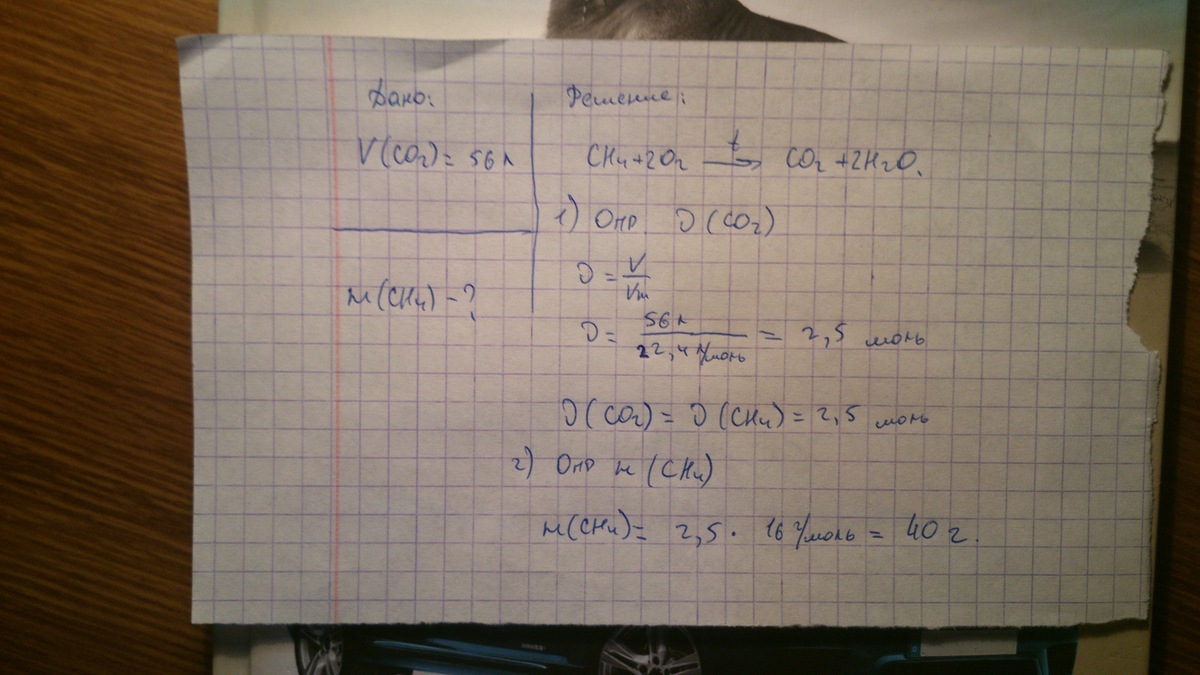 Дано:
V(CO₂) = 56 л
m(CH₄) - ?
Решение:
CH₄ + 2O₂ →ᵗ CO₂ + 2H₂O.
1) Опр. ν(CO₂)
ν = V/Vm
ν = 56 л / 22,4 л/моль = 2,5 моль
ν(CO₂) = ν(CH₄) = 2,5 моль
2) Опр m(CH₄)
m(CH₄) = 2,5 · 16 г/моль = 40 г.